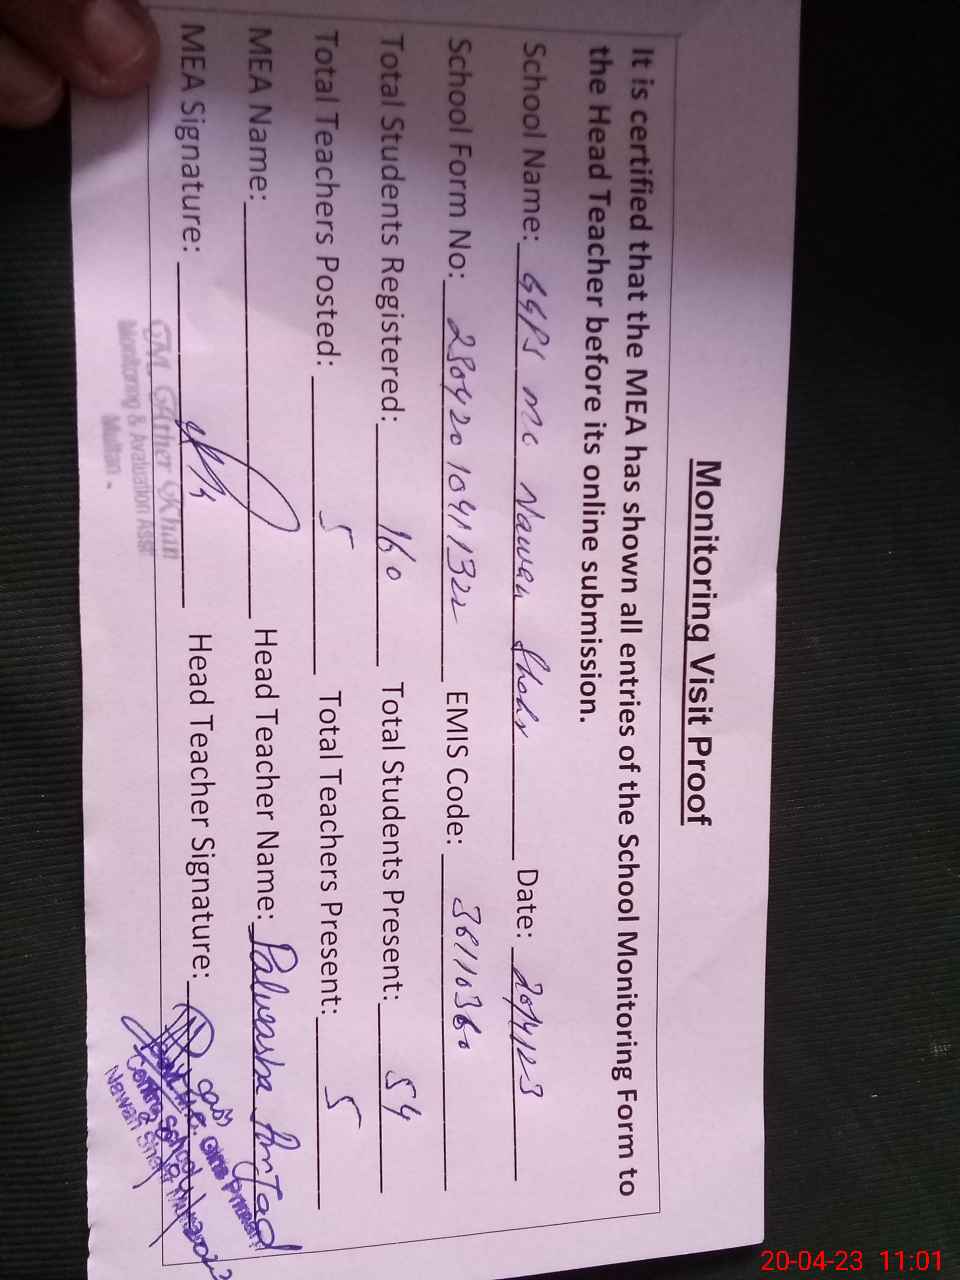 Monitoring Visit Proof
It is certified that the MEA has shown all entries of the School Monitoring Form to
the Head Teacher before its online submission.
School Name: GGPS MC Nawan Shehr Date: 20/4/23
School Form No: 2804201041322 EMIS Code: 36110360
Total Students Registered: 160 Total Students Present: 54
Total Teachers Posted: 5 Total Teachers Present: 5
MEA Name: Head Teacher Name: Palwasha Amjad
MEA Signature: Head Teacher Signature:
Monitoring & Avaluation Asst
Multan.
Nawan
20-04-23 11:01